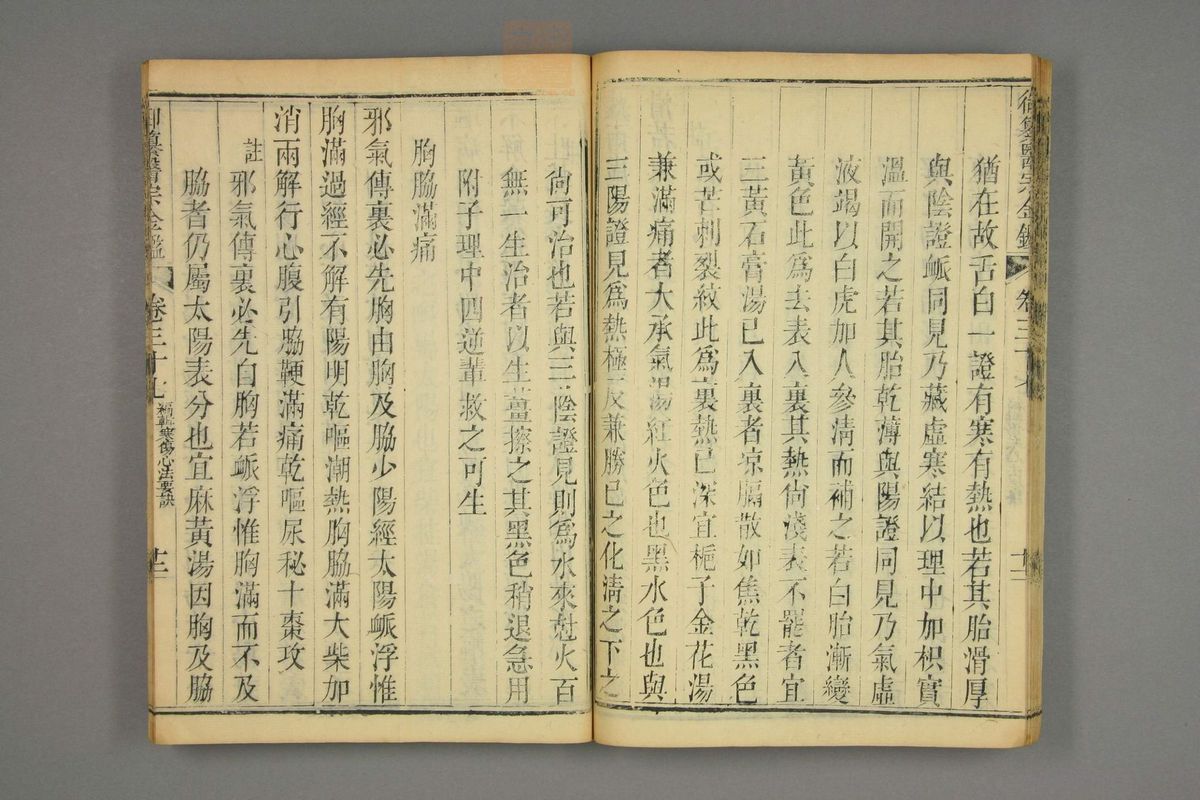 猶在故舌白一證有寒有熱也若其胎滑厚
與陰證衇同見乃藏虛寒結以理中加枳實
溫而開之若其胎乾薄與陽證同見乃氣虛
液竭以白虎加人參淸而補之若白胎漸變
黃色此爲去表入裏其熱尙淺表不罷者宜
三黃石膏湯已入裏者凉膈散如焦乾黑色
或芒刺裂紋此爲裏熱已深宜梔子金花湯
兼滿痛者大承氣湯紅火色也黑水色也與
三陽證見爲熱極反兼勝已之化淸之下之
尙可治也若與三陰證見則爲水來尅火百
無一生治者以生薑擦之其黑色稍退急用
附子理中四逆輩救之可生
胸脇滿痛
邪氣傳裏必先胸由胸及脇少陽經太陽衇浮惟
胸滿過經不解有陽明乾嘔潮熱胸脇滿大柴加
消兩解行心腹引脇鞕滿痛乾嘔尿秘十棗攻
註
邪氣傳裏必先自胸若衇浮惟胸滿而不及
脇者仍屬太陽表分也宜麻黃湯因胸及脇
御纂醫宗金鑑 卷三十九 編輯寒傷心法要訣